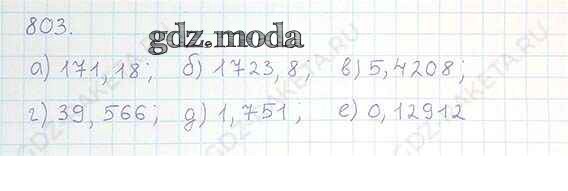 803.
gdz.moda
а) 171,18; б) 1723,8; в) 5,4208;
г) 39,566; д) 1,751; е) 0,12912
GDZ-RAKETA.RU